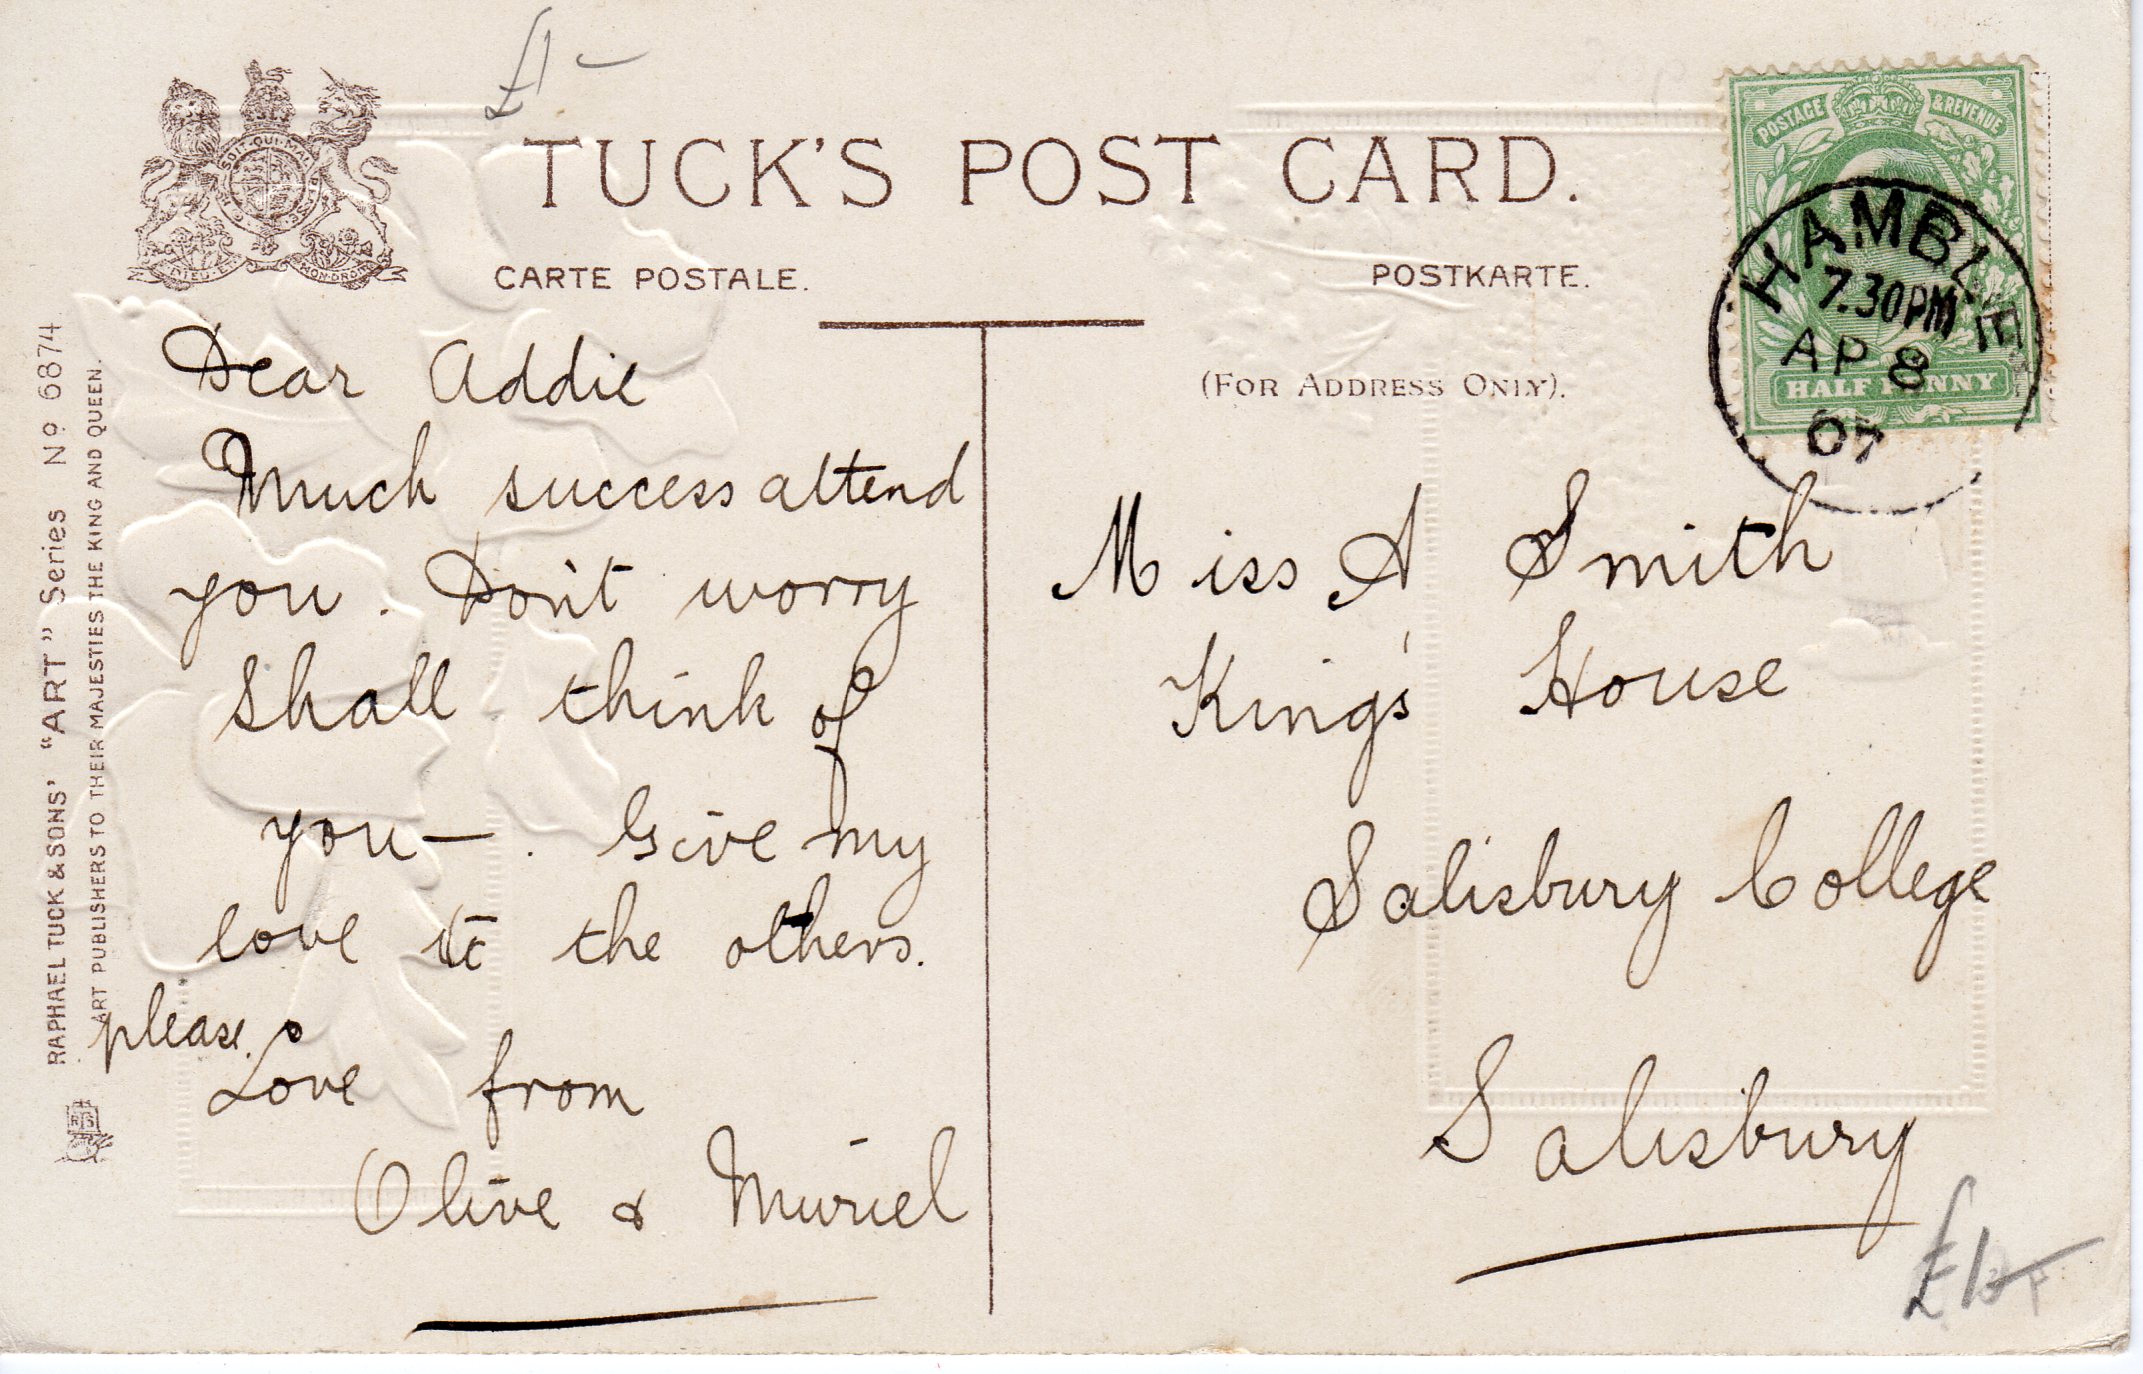 £1-
TUCK'S POST CARD.
CARTE POSTALE.
POSTKARTE.
(FOR ADDRESS ONLY).
POSTAGE & REVENUE
HALF PENNY
HAMBLE
7.30PM
AP 8
07
SOIT QUI MAL
DIEU ET MON DROIT
RAPHAEL TUCK & SONS' "ART" Series No 6874
ART PUBLISHERS TO THEIR MAJESTIES THE KING AND QUEEN.
Dear Addie
Much success attend
you. Don't worry
Shall think of
you—. Give my
love to the others.
please.
Love from
Olive & Muriel
Miss A Smith
King's House
Salisbury College
Salisbury